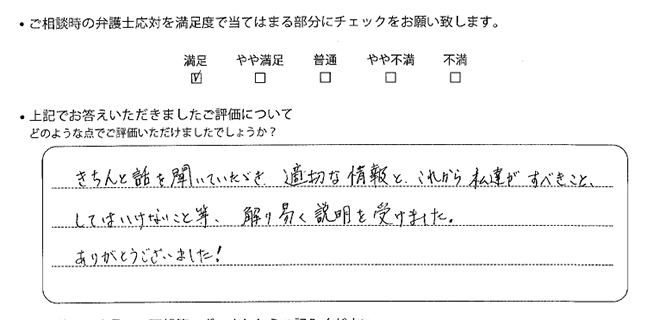 ・ご相談時の弁護士応対を満足度で当てはまる部分にチェックをお願い致します。
満足 やや満足 普通 やや不満 不満
☑ □ □ □ □
・上記でお答えいただきましたご評価について
どのような点でご評価いただけましたでしょうか？
きちんと話を聞いていただき、適切な情報と、これから私達がすべきこと、
してはいけないこと等、解り易く説明を受けました。
ありがとうございました！